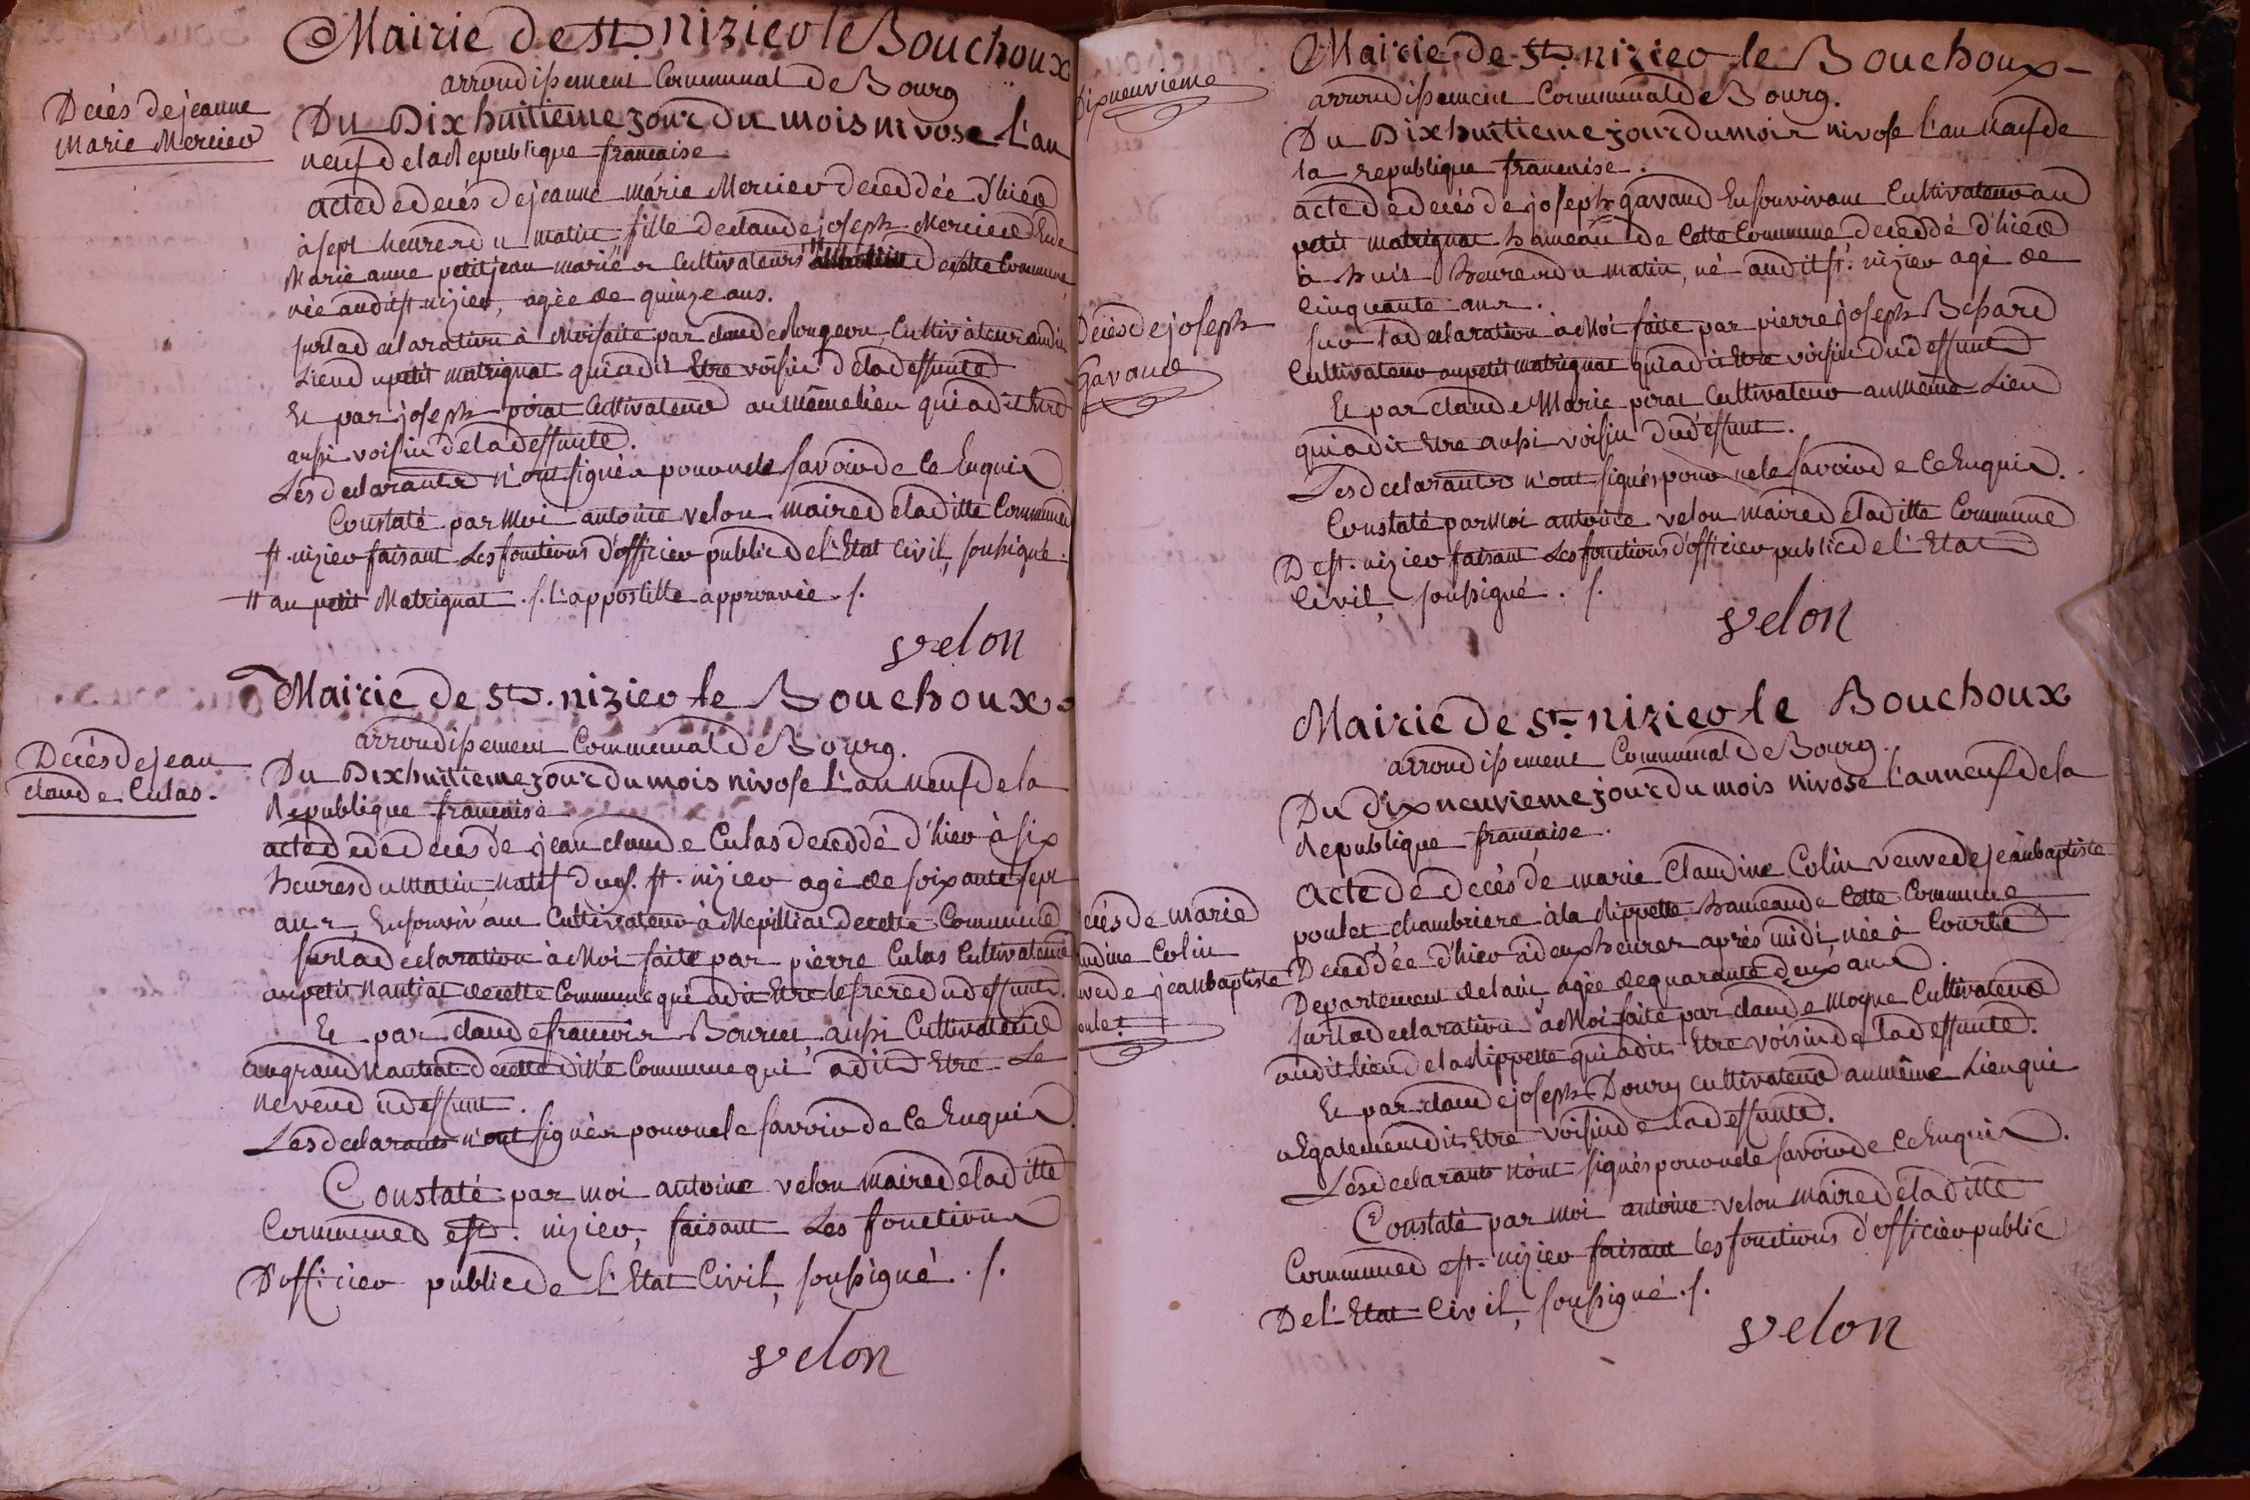 Mairie de St. nizier le Bouchoux
arrondissement Communal de Bourg
Décès de jeanne
Marie Mercier
Du Dix huitieme jour du mois nivose L'an
neuf de la Republique française
acte de decés de jeanne marie Mercier deceddée d'hier
à sept heures du matin fille de claude joseph Mercier Et de
Marie anne petitjean mariés cultivateurs # de cette Commune,
née audit st. nizier, agée de quinze ans.
sur la declaration à Moi faite par claude Rougeon, Cultivateur audit
Lieu du petit matrignat qui a dit Etre voisin de la deffunte
Et par joseph pirat Cultivateur au même lieu qui a dit Etre
aussi voisin de la deffunte.
Les declarants n'ont signés pour ne le savoir de ce Enquis
Constaté par Moi antoine velon maire de la ditte Commune de
st. nizier faisant Les fonctions d'officier public de l'Etat Civil, soussigné.
# au petit Matrignat ./. L'appostille approuvée ./.
velon
Mairie de St. nizier le Bouchoux
arrondissement Communal de Bourg.
Decés de jean
claude Culas.
Du Dix huitieme jour du mois nivose L'an neuf de la
Republique française
acte de decés de jean claude Culas deceddé d'hier à six
heures du Matin natif dud. st. nizier agé de soixante sept
ans, En son vivant Cultivateur à Mepilliat de cette Commune
sur la declaration à Moi faite par pierre Culas Cultivateur
au petit Nantiat de cette Commune qui a dit Etre le frere du deffunt.
Et par claude françois Bourcet aussi Cultivateur
au grand Nantiat de cette ditte Commune qui a dit Etre Le
neveu du deffunt.
Les declarants n'ont signés pour ne le savoir de ce Enquis
Constaté par moi antoine velon maire de la ditte
Commune de st. nizier, faisant Les fonctions
D'officier public de l'Etat Civil, soussigné ./.
velon
Dixneuvieme
Mairie de St. nizier le Bouchoux
arrondissement Communal de Bourg.
Du Dix huitieme jour du mois nivose l'an neuf de
la republique française.
acte de decés de joseph gavand En son vivant Cultivateur au
petit matrignat hameau de cette Commune deceddé d'hier
à huit heures du matin, né audit st. nizier agé de
cinquante ans.
Decés de joseph
Gavand
sur la declaration à Moi faite par pierre joseph Bchard
Cultivateur au petit matrignat qui a dit Etre voisin du deffunt
Et par claude Marie pirat Cultivateur au même Lieu
qui a dit Etre aussi voisin du deffunt.
Les declarants n'ont signés pour ne le savoir de ce Enquis.
Constaté par Moi antoine velon maire de la ditte Commune
De st. nizier faisant Les fonctions d'officier public de l'Etat
Civil, soussigné ./.
velon
Mairie de St. nizier le Bouchoux
arrondissement Communal de Bourg.
Du dix neuvieme jour du mois nivose L'an neuf de la
Republique française.
ecés de marie
udine Colin
uve de jean baptiste
oulet
Acte de decés de marie Claudine Colin veuve de jean baptiste
poulet chambriere à la Rippette hameau de cette Commune
Deceddée d'hier à deux heures aprés midi, née à Courte
Departement de lain, agée de quarante deux ans.
sur la declaration à Moi faite par claude moyne Cultivateur
audit lieu de la Rippette qui a dit Etre voisin de la deffunte.
Et par claude joseph Doury cultivateur au même Lieu qui
a Egalement dit Etre voisin de la deffunte.
Les declarants n'ont signés pour ne le savoir de ce Enquis.
Constaté par moi antoine velon maire de la ditte
Commune de st. nizier faisant les fonctions d'officier public
De l'Etat Civil, soussigné ./.
velon